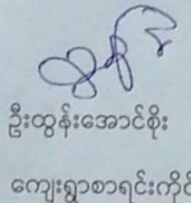 ဦးထွန်းအောင်စိုး
ကျေးရွာစာရင်းကိုင်